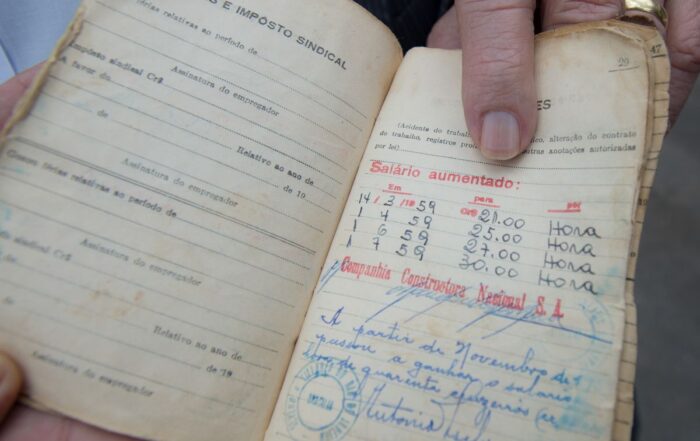 S E IMPÔSTO SINDICAL
Férias relativas ao período de
Impôsto sindical Cr$
Assinatura do empregador
A favor do
de
Relativo ao ano de
de 19
Assinatura do empregador
férias relativas ao período de
Assinatura do empregador
sindical Cr$
Assinatura do empregador
Relativo ao ano de
de 19
Assinatura do empregador
29
47
ES
(Acidente do trabalho, alteração do contrato
do trabalho, registros outras anotações autorizadas
por lei)
Salário aumentado:
Em para por
14 / 3 / 19 59 Cr$ 21.00 Hora
1 4 59 25.00 Hora
1 6 59 27.00 Hora
1 7 59 30.00 Hora
Companhia Constructora Nacional S. A.
A partir de Novembro de
passou a ganhar o salario
de quarenta cruzeiros